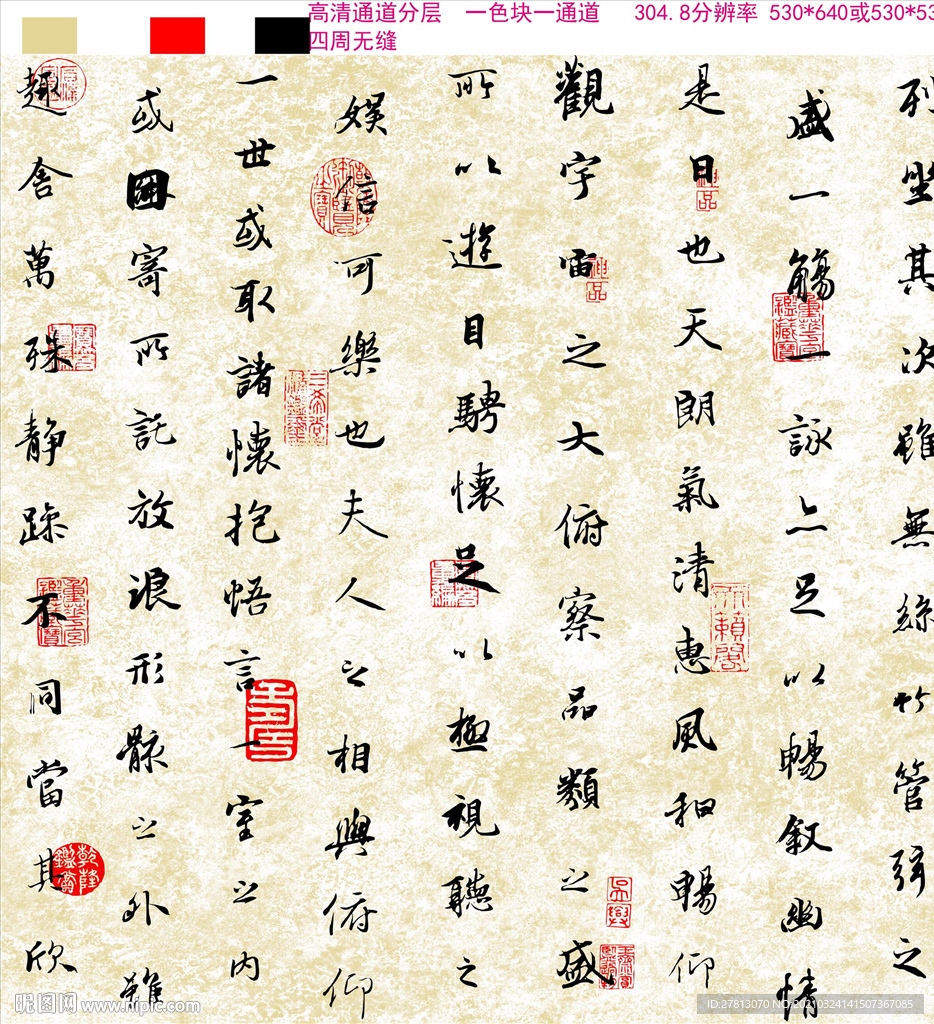 高清通道分层 一色块一通道 304.8分辨率 530*640或530*53
四周无缝
列坐其次雖無絲竹管弦之
盛一觴一詠亦足以暢叙幽情
是日也天朗氣清惠風和暢仰
觀宇宙之大俯察品類之盛
所以遊目騁懷足以極視聽之
娛信可樂也夫人之相與俯仰
一世或取諸懷抱悟言一室之内
或因寄所託放浪形骸之外雖
趣舍萬殊静躁不同當其欣
乾隆鑑賞
重華宮鑑藏寶
昵图网 www.nipic.com
ID:27813070 NO:20210324141507367085